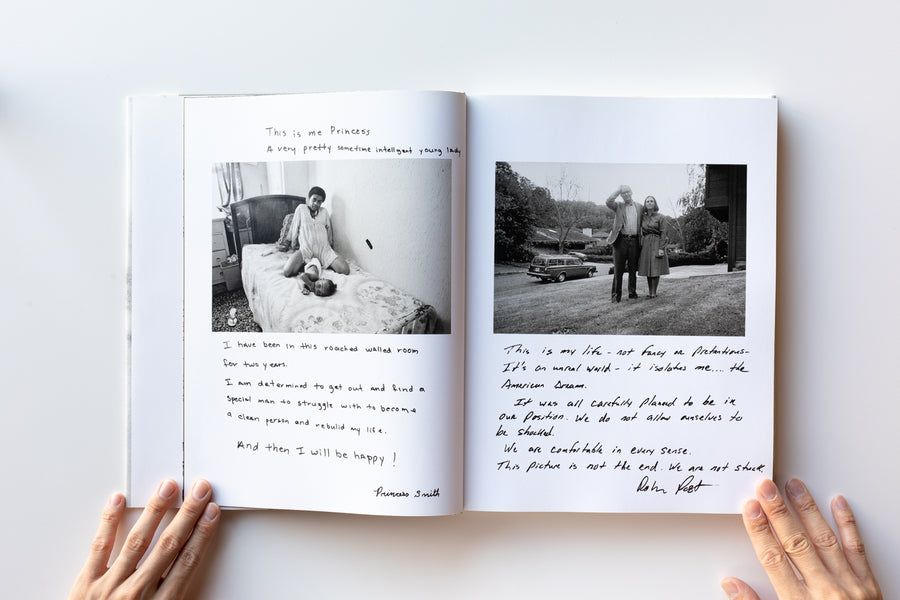 This is me Princess
A very pretty sometime intellgent young lady
I have been in this roached walled room
for two years.
I am determined to get out and find a
special man to struggle with to become
a clean person and rebulid my life.
And then I will be happy !
Princess Smith
This is my life - not fancy or Pretentious -
It's an unreal world - it isolates me.... the
American Dream.
It was all carefully planned to be in
our position. We do not allow ourselves to
be shocked.
We are comfortable in every sense.
This picture is not the end. We are not stuck.